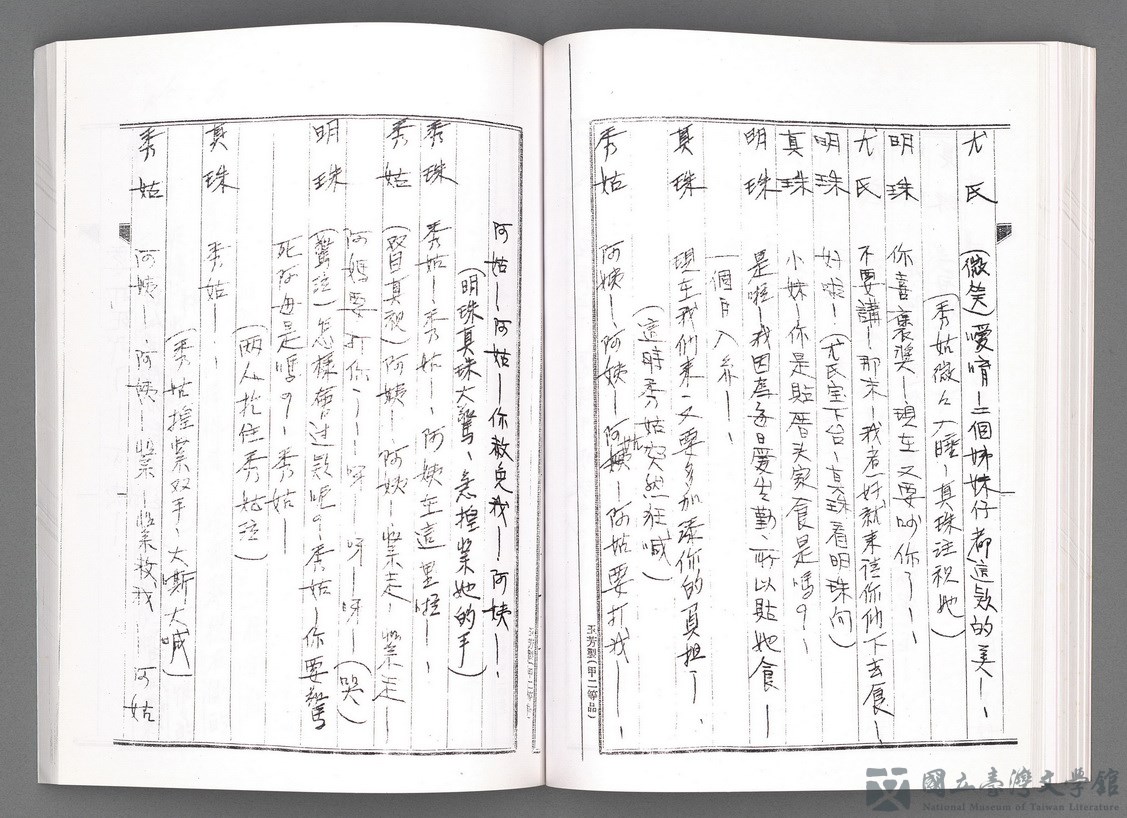 尤氏　(微笑)噯唷—二個姊妹仔都這款的美—、
(秀姑微々入睡、真珠注視她)
明珠　你喜褒獎—現在又要叫你了—、
尤氏　不要講！那末—我者好就來信你們下去食—
明珠　好啦！(尤氏室下台、真珠看明珠向)
真珠　小妹—你是貼厝头家食是嗎？—
明珠　是啦—我因為逐日愛出勤、所以貼她食—
一個月入糸—、
真珠　現在我们来、又要多加添你的負担了—、
(這時秀姑突然狂喊)
秀姑　阿姨—阿姨—阿姨—阿姑要打我—、
玉芳製(甲二等品)
阿姑—阿姑—你救免我—阿姨—、
(明珠真珠大驚、急握紧她的手)
秀珠　秀姑—秀姑—、阿姨在這里啦—、
秀姑　(賢真親)阿姨—阿姨—紧走—紧走—
阿媽要打你——呀—呀—呀—(哭)
明珠　(驚泣)怎樣奮过款呢？秀姑—你要驚
死阿母是嗎？—秀姑—
(两人抱住秀姑泣)
真珠　秀姑—、
(秀姑握紧双手、大嘶大喊)
秀姑　阿姨—、阿姨—紧—紧救我—、阿姑
玉芳製(甲二等品)
國立臺灣文學館
National Museum of Taiwan Literature